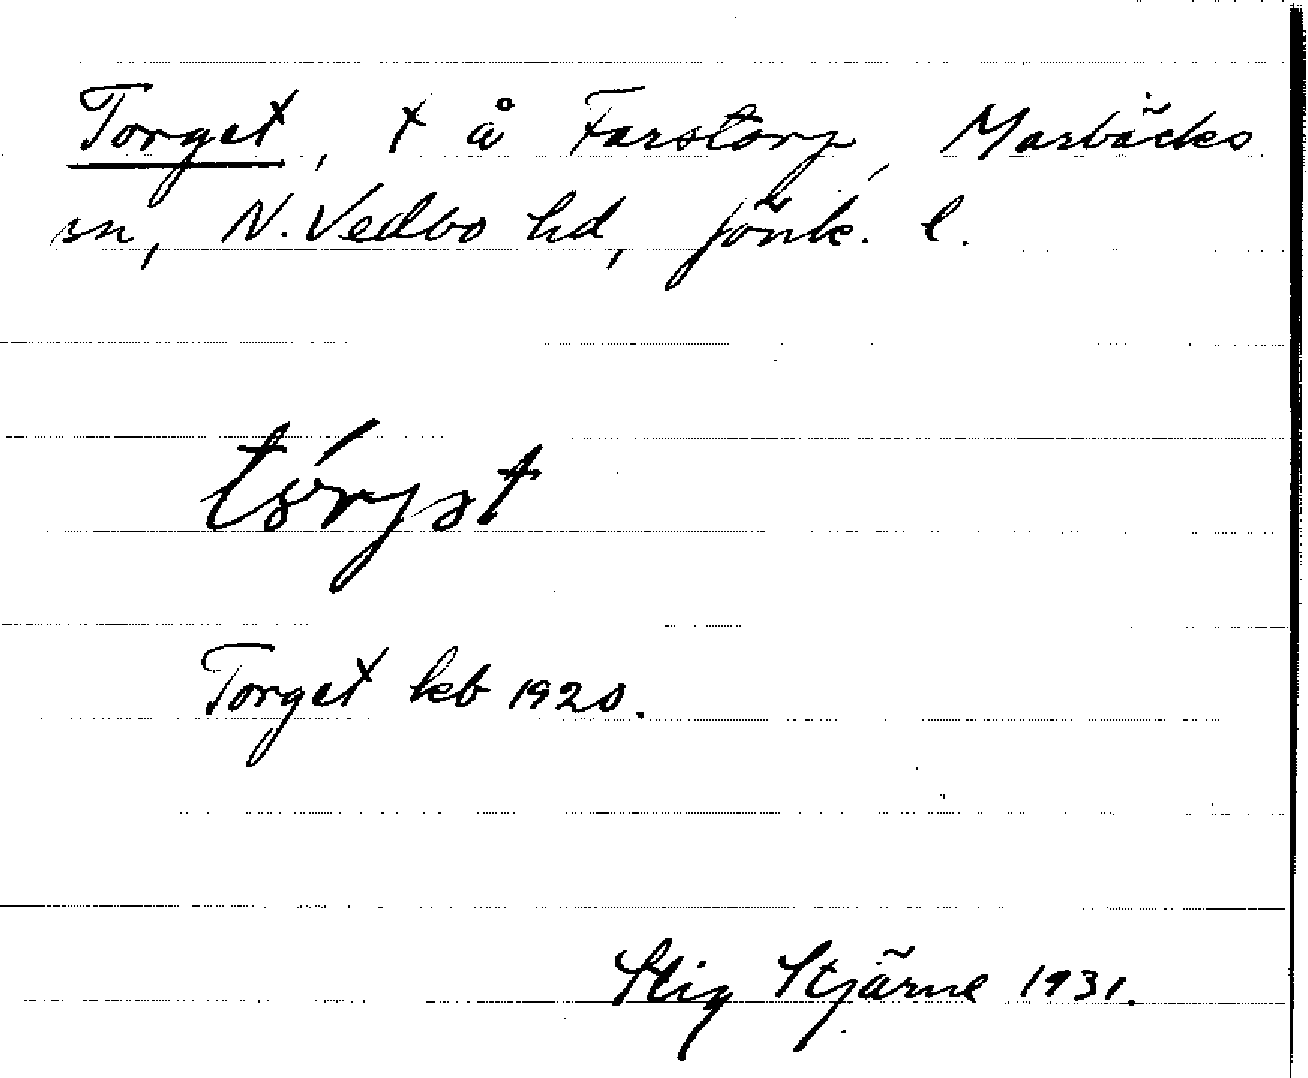 Torget, t å Farstorp, Marbäcks
sn, N. Vedbo hd, Jönk. l.
tórjat
Torget kb 1920.
Stig Stjärne 1931.